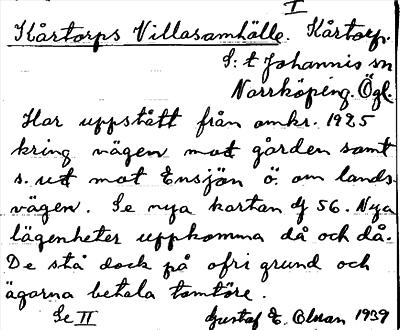 I
Kårtorps Villasamhälle. Kårtorp.
S:t Johannis sn
Norrköping. Ögl.
Har uppstått från omkr. 1925
kring vägen mot gården samt
s. ut mot Ensjön ö. om lands-
vägen. Se nya kartan 56. Nya
lägenheter uppkomma då och då.
De stå dock på ofri grund och
ägarna betala tomtöre.
Se II Gustaf E. 1939